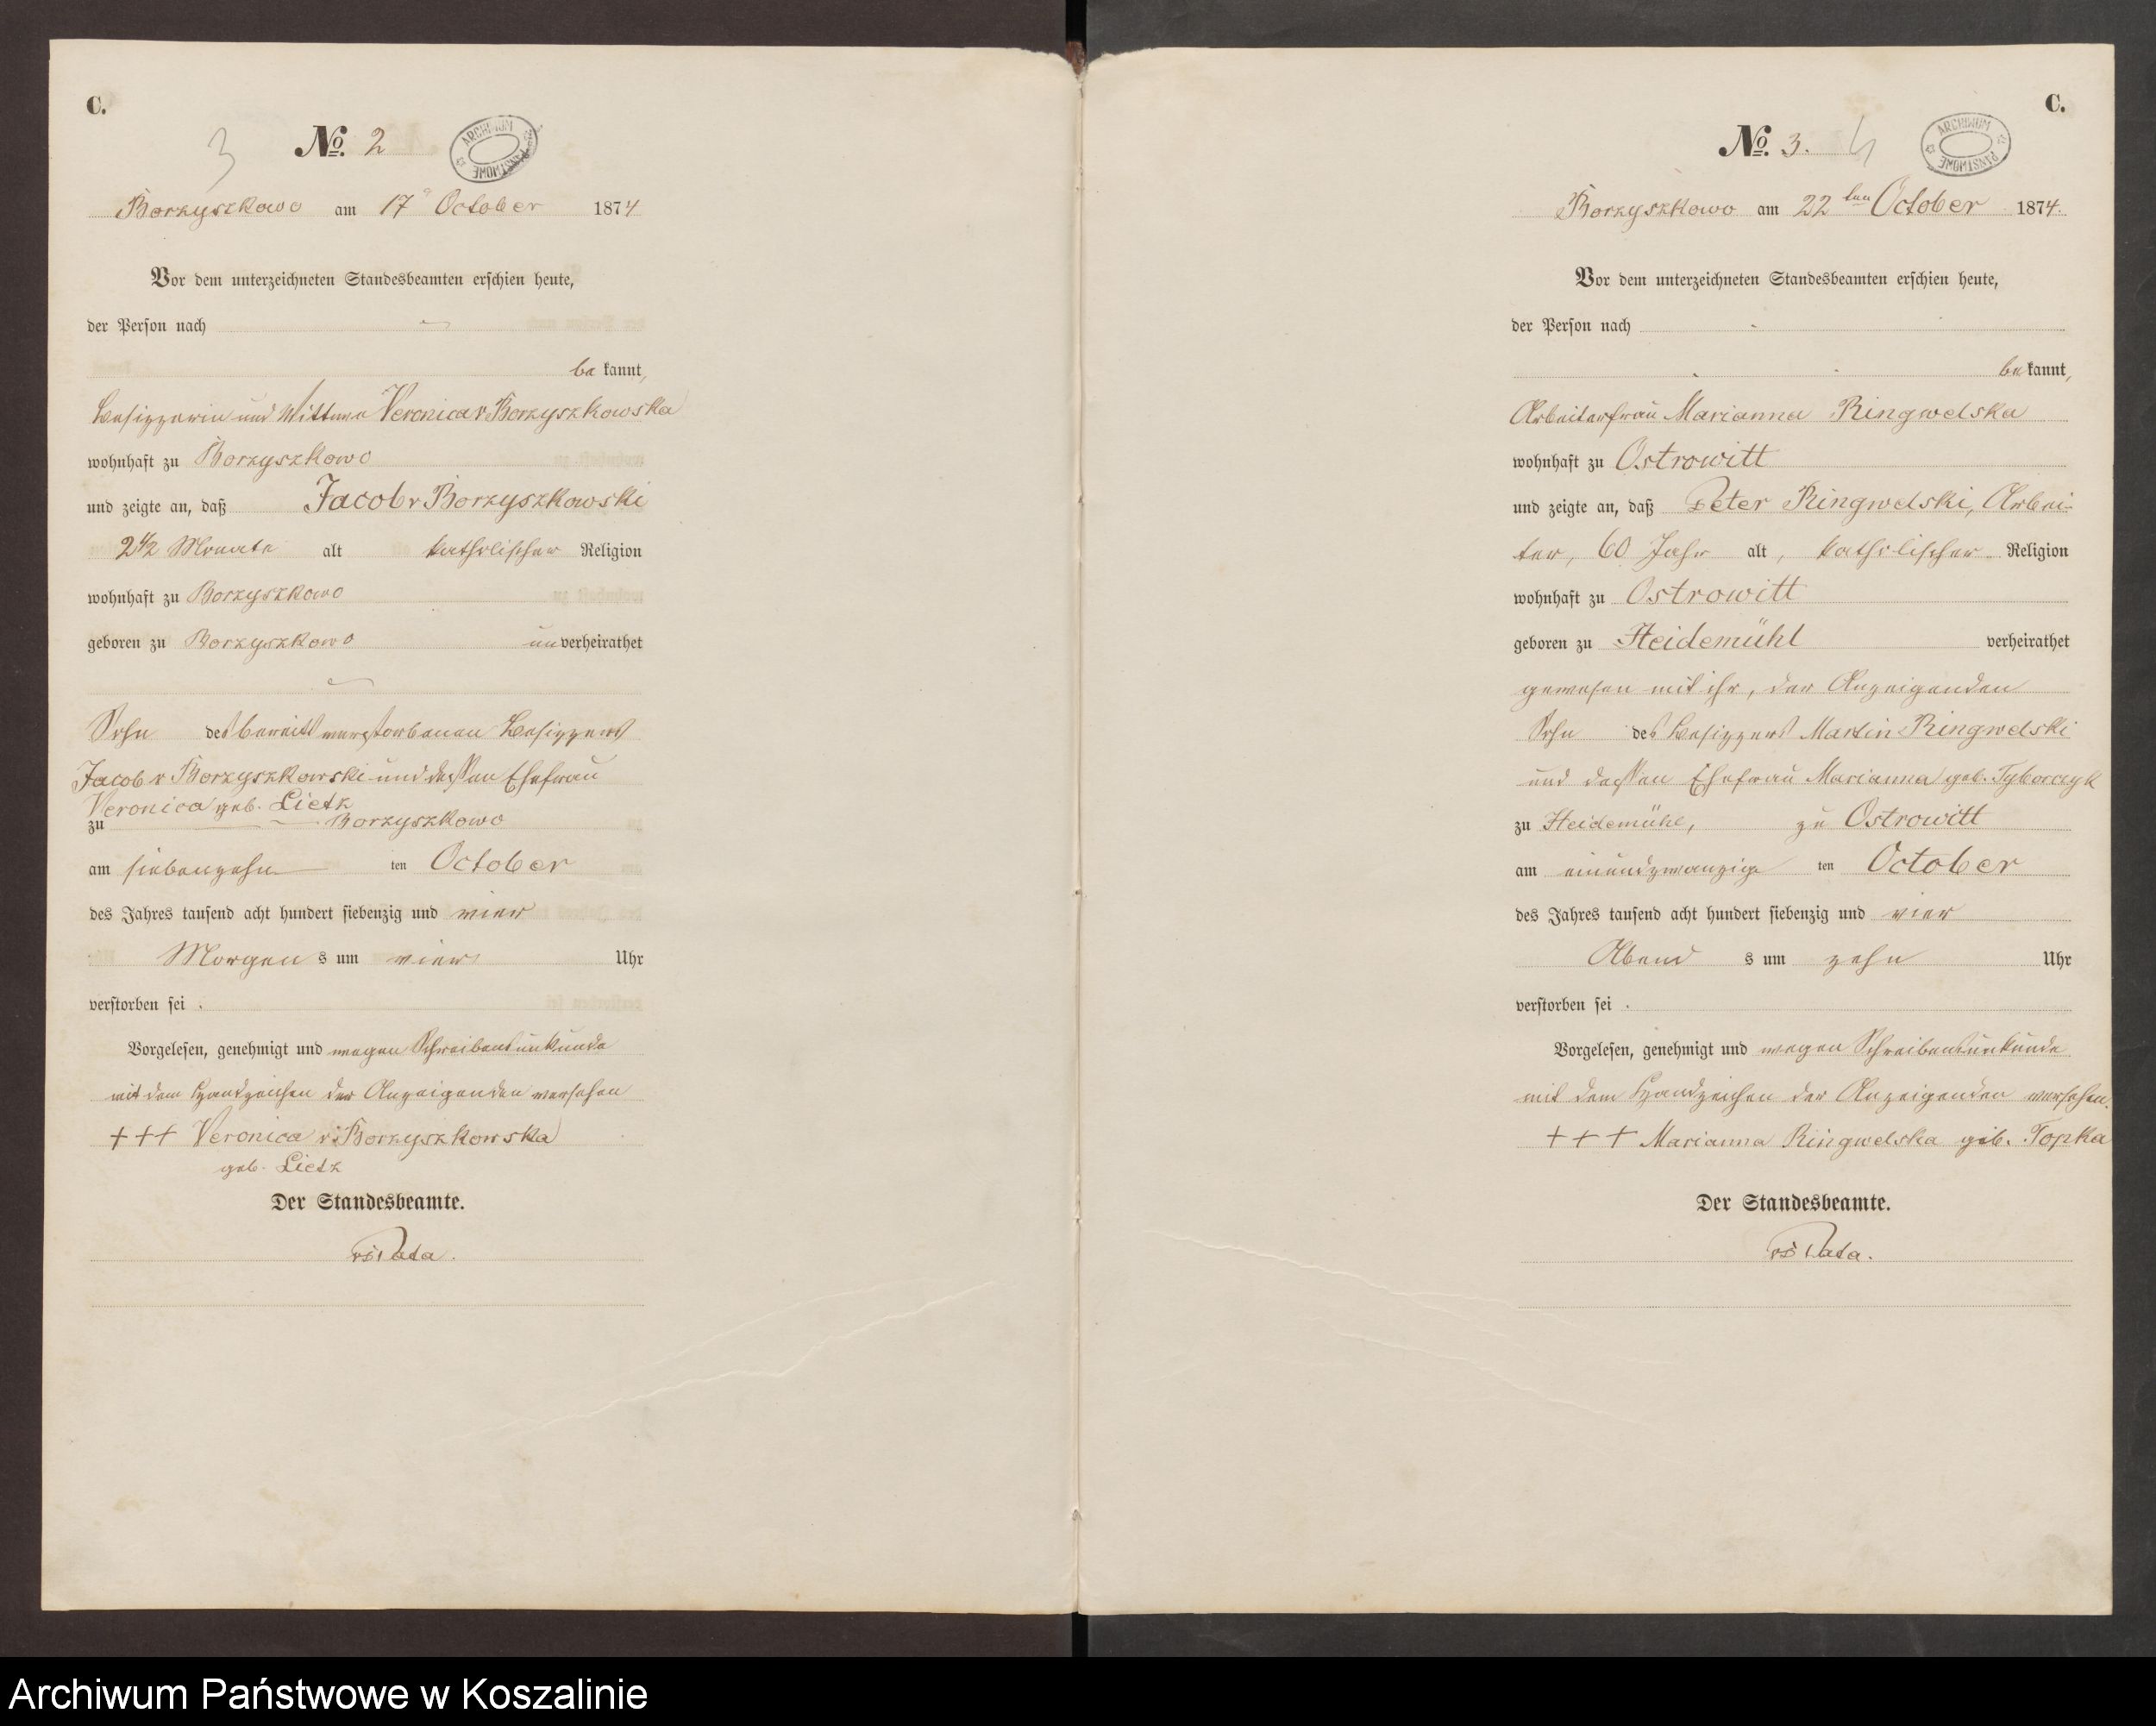 C.
3
No. 2
ARCHIWUM PAŃSTWOWE
Borzyszkowo am 17 October 1874
Vor dem unterzeichneten Standesbeamten erschien heute,
der Person nach
bekannt,
Besizzerin und Wittwe Veronica v Borzyszkowska
wohnhaft zu Borzyszkowo
und zeigte an, daß Jacob v Borzyszkowski
2 1/2 Monate alt katholischer Religion
wohnhaft zu Borzyszkowo
geboren zu Borzyszkowo unverheirathet
Sohn des bereits verstorbenen Besizzers
Jacob v Borzyszkowski und dessen Ehefrau
Veronica geb. Lietz
zu Borzyszkowo
am siebenzehn ten October
des Jahres tausend acht hundert siebenzig und vier
Morgens um vier Uhr
verstorben sei.
Vorgelesen, genehmigt und wegen Schreibensunkunde
mit dem Handzeichen der Anzeigenden versehen
+++ Veronica v. Borzyszkowska
geb. Lietz
Der Standesbeamte.
Pata.
C.
No. 3. 4
ARCHIWUM PAŃSTWOWE
Borzyszkowo am 22ten October 1874.
Vor dem unterzeichneten Standesbeamten erschien heute,
der Person nach
bekannt,
Arbeiterfrau Marianna Ringwelska
wohnhaft zu Ostrowitt
und zeigte an, daß Peter Ringwelski, Arbei-
ter, 60 Jahr alt, katholischer Religion
wohnhaft zu Ostrowitt
geboren zu Heidemühl verheirathet
gewesen mit ihr, der Anzeigenden
Sohn des Besizzers Martin Ringwelski
und dessen Ehefrau Marianna geb. Tyborczyk
zu Heidemühl, zu Ostrowitt
am einundzwanzig ten October
des Jahres tausend acht hundert siebenzig und vier
Abends um zehn Uhr
verstorben sei.
Vorgelesen, genehmigt und wegen Schreibensunkunde
mit dem Handzeichen der Anzeigenden versehen.
+++ Marianna Ringwelska geb. Topka
Der Standesbeamte.
Pata.
Archiwum Państwowe w Koszalinie